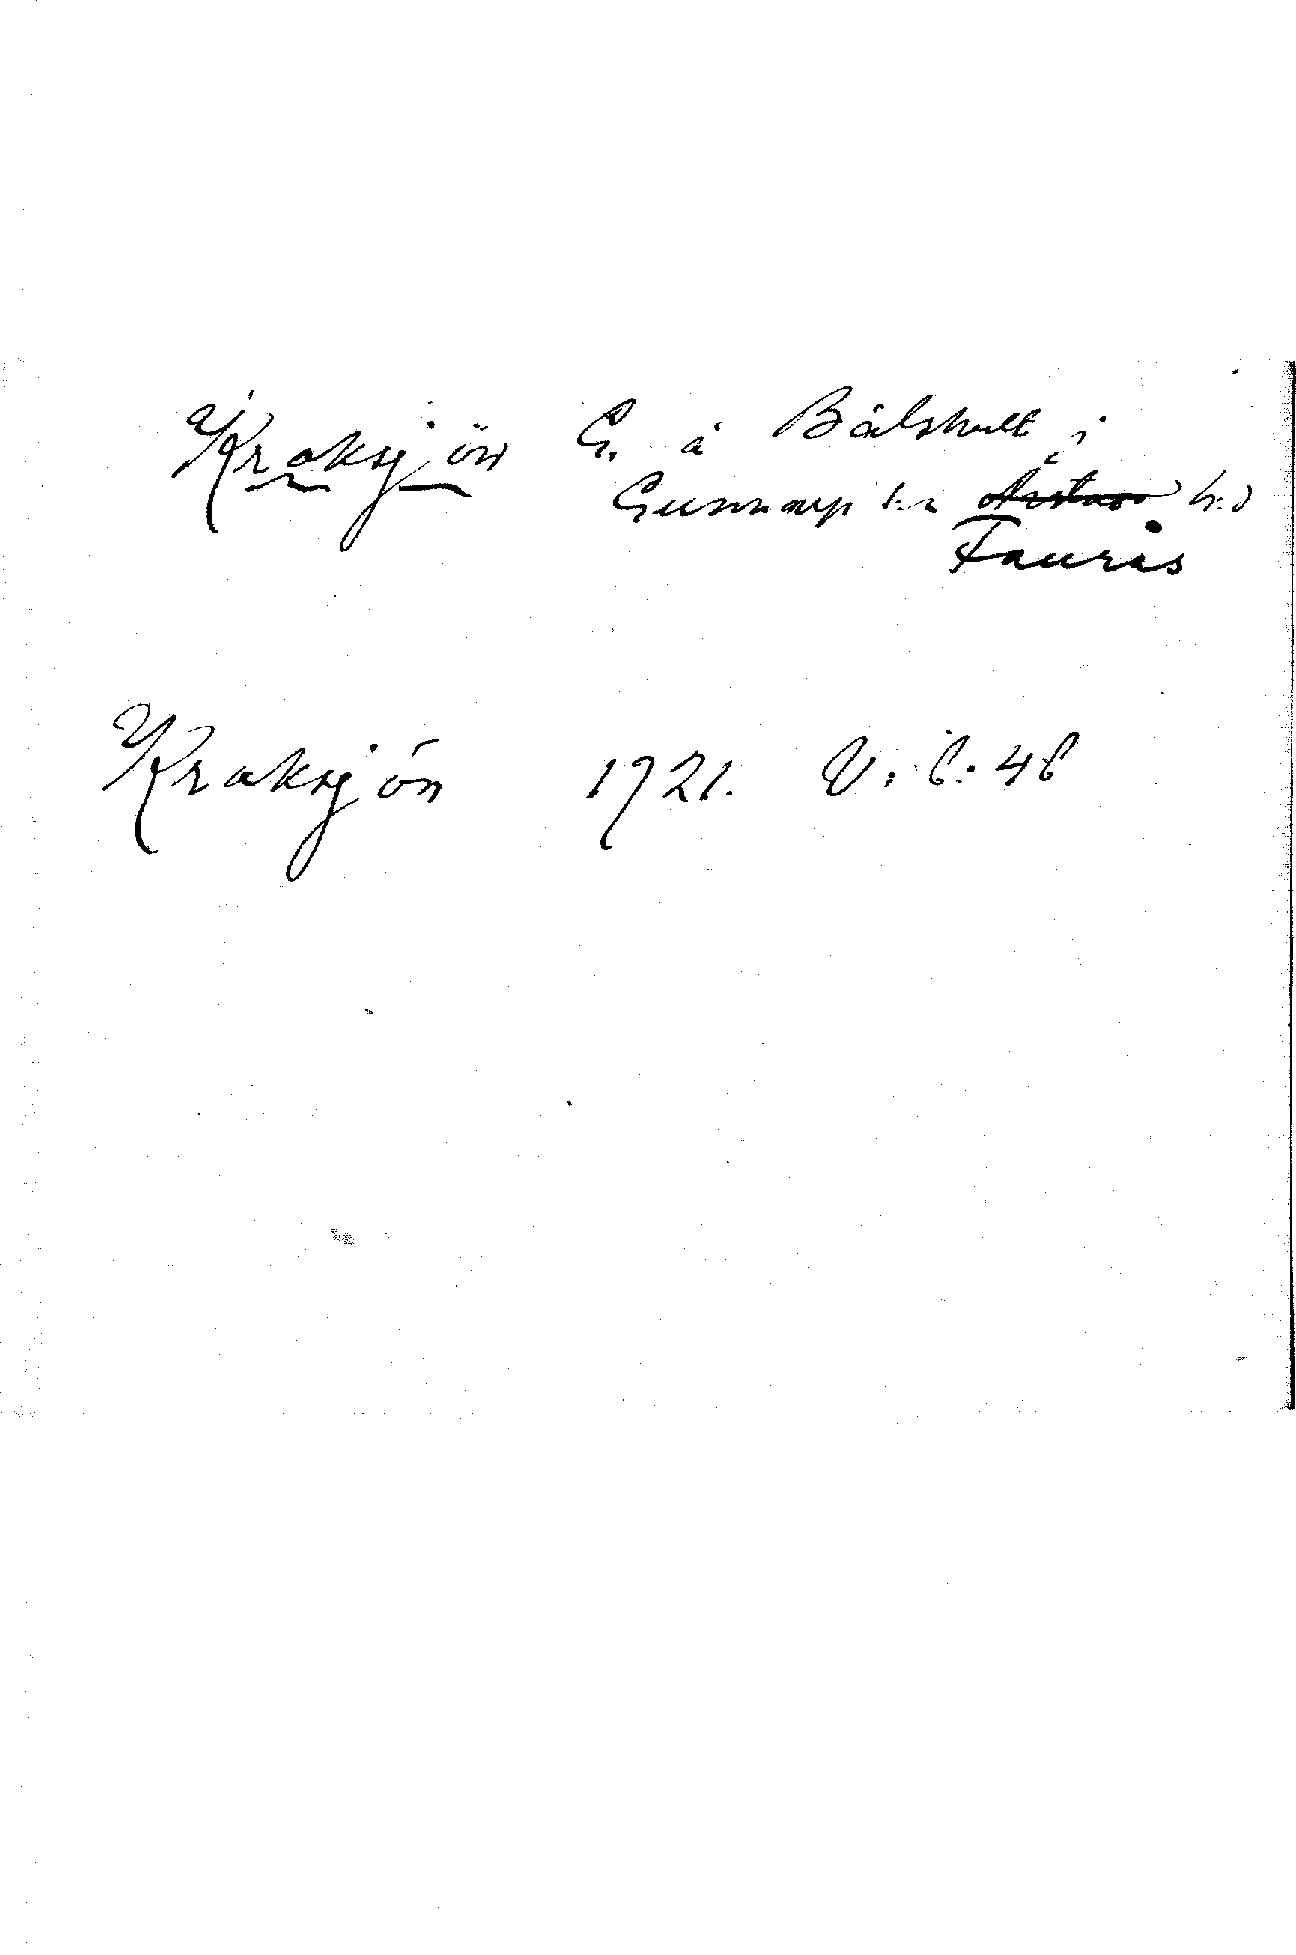 Kraksjön G. å Bålshult i
Gunnarp s:n Årstad h:d
Faurås
Kraksjön 1721. V: 6: 46